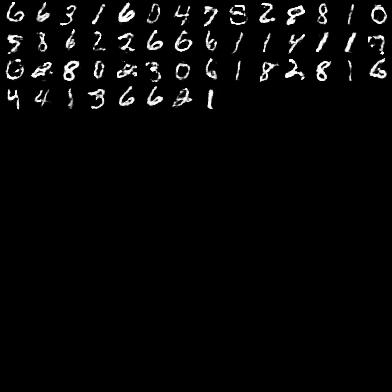 6 6 3 1 6 0 4 7 8 2 8 8 1 0
5 8 6 2 2 6 6 6 1 1 4 1 1
0 2 8 0 2 3 0 6 1 8 2 8 1 6
4 4 1 3 6 6 2 1